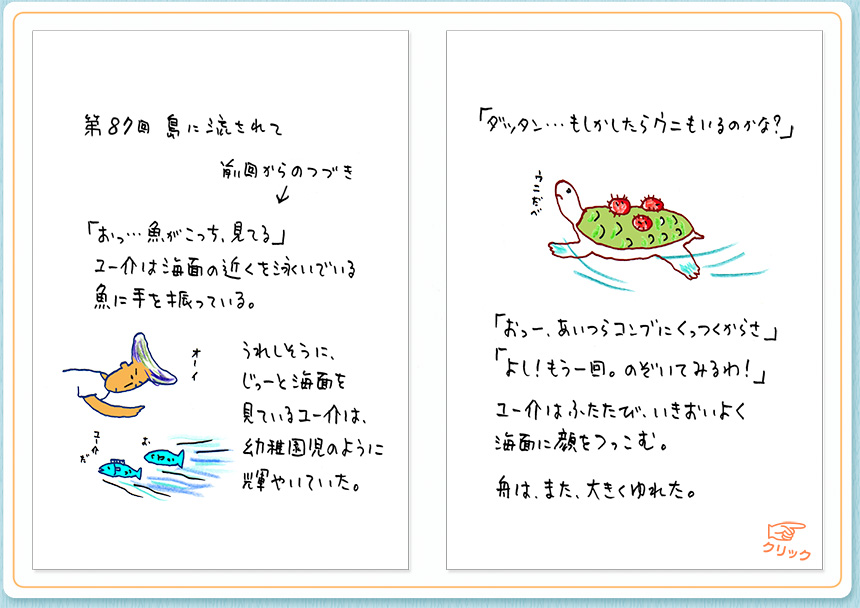 第87回 島に流されて
前回からのつづき
「おっ…魚がこっち、見てる」
ユー介は海面の近くを泳いでいる
魚に手を振っている。
オーイ
うれしそうに、
じっーと海面を
見ているユー介は、
幼稚園児のように
輝やいていた。
ユー介
だ
お、
「ダッタン…もしかしたらウニもいるのかな?」
ウニだべ
「おっー、あいつらコンブにくっつくからさ」
「よし!もう一回。のぞいてみるわ!」
ユー介はふたたび、いきおいよく
海面に顔をつっこむ。
舟は、また、大きくゆれた。
クリック